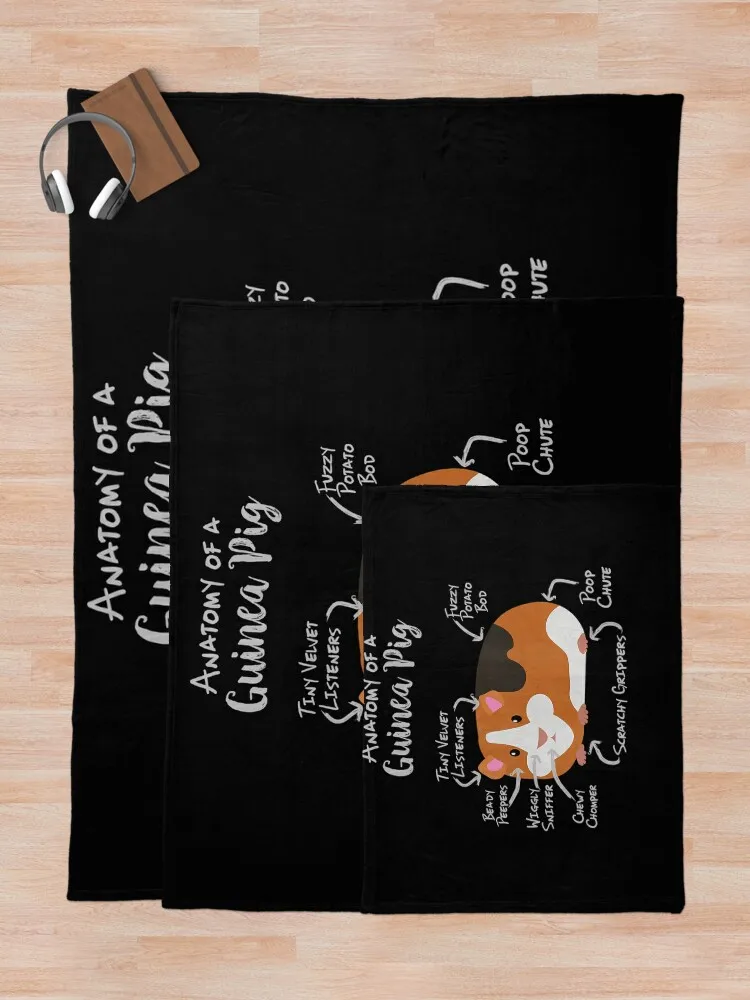 ANATOMY OF A
Guinea Pig
ANATOMY OF A
Guinea Pig
FUZZY
POTATO
BOD
POOP
CHUTE
TINY VELVET
LISTENERS
ANATOMY OF A
Guinea Pig
FUZZY
POTATO
BOD
POOP
CHUTE
TINY VELVET
LISTENERS
SCRATCHY GRIPPERS
BEADY
PEEPERS
WIGGLY
SNIFFER
CHEWY
CHOMPER